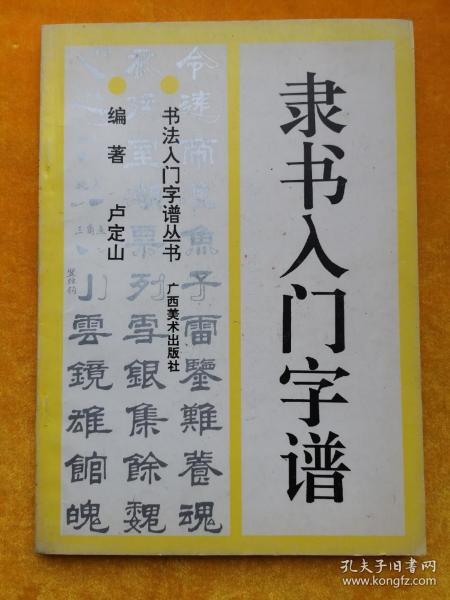 隶书入门字谱
书法入门字谱丛书
广西美术出版社
编著 卢定山
子雷鑒難養魂
票列雪銀集餘魏
雲鏡雄館魄
三角点
孔夫子旧书网
www.kongfz.com